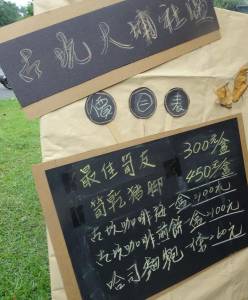 古坑大埔社區
價目表
最佳筍支 300元/盒
筍乾豬腳 450元/盒
古坑咖啡 盒=100元
古坑咖啡煎餅 盒=100元
哈司麵包 條=60元